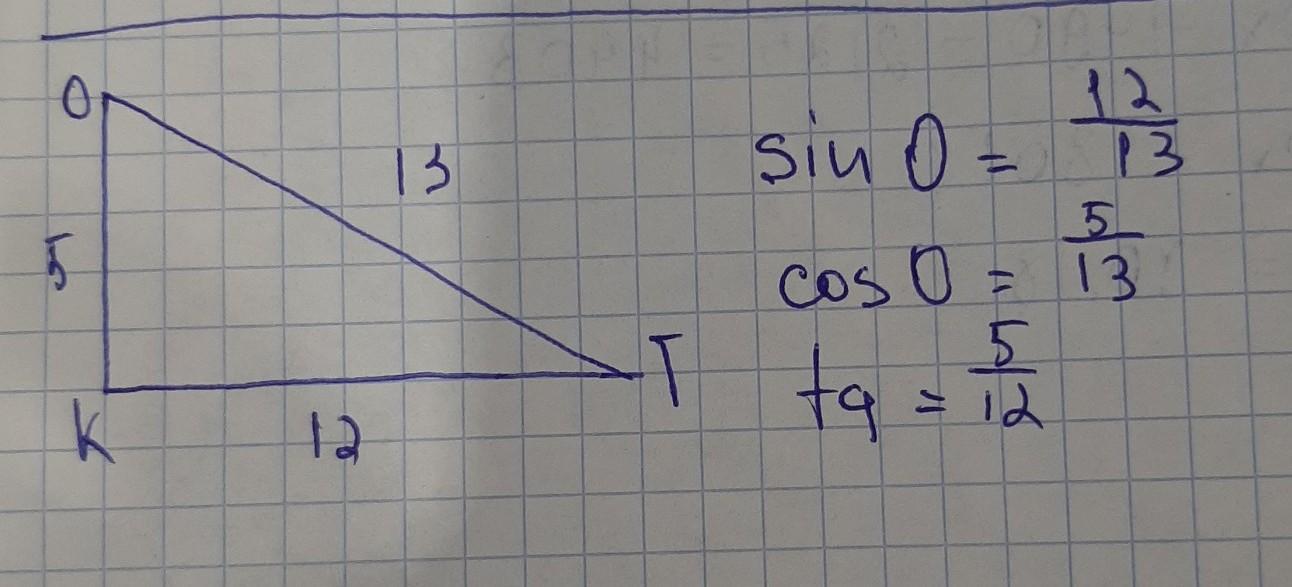 O
13
5
K
12
T
sin O = 12/13
cos O = 5/13
tg = 5/12